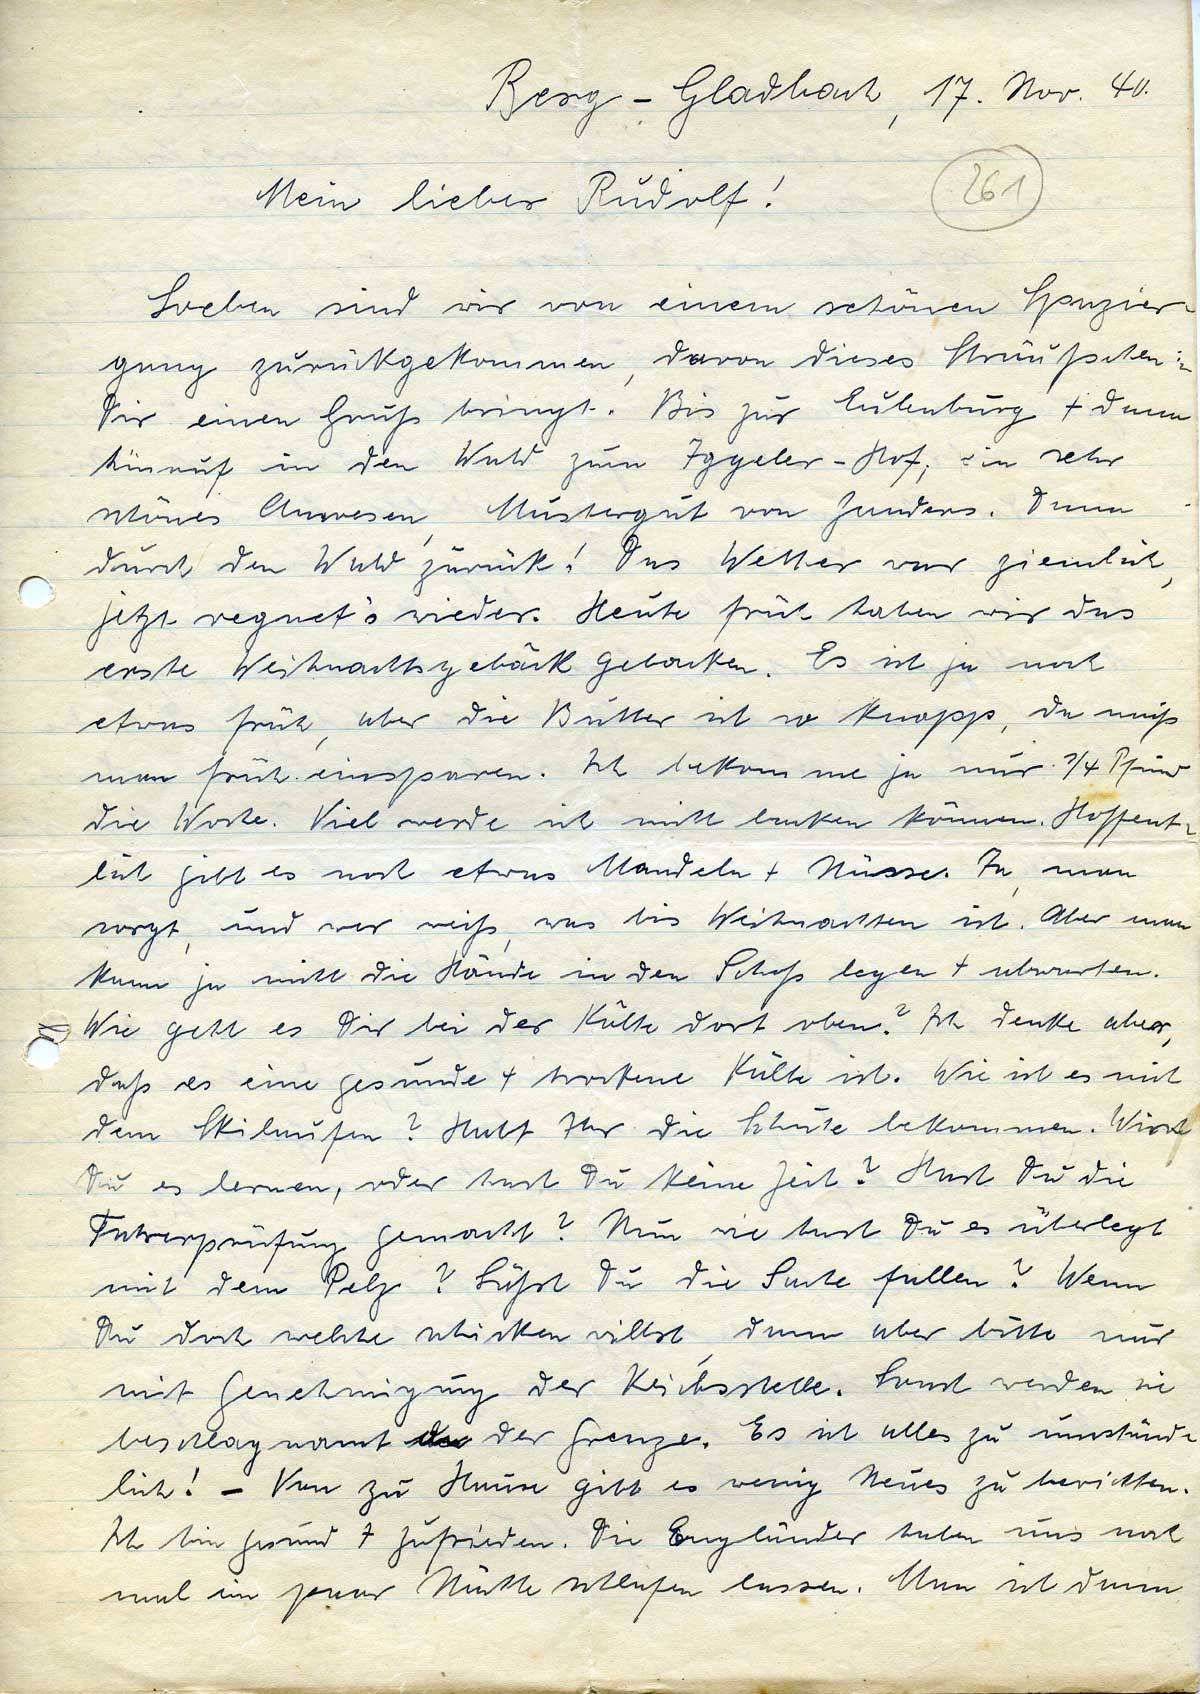 Berg-Gladbach, 17. Nov. 40.
261
Mein lieber Rudolf!
Soeben sind wir von einem schönen Spazier-
gang zurückgekommen, davon dieses Sträußchen
Dir einen Gruß bringt. Bis zur Eulenburg + dann
hinauf in den Wald zum Iggeler-Hof, ein sehr
schönes Anwesen, Mustergut von Zanders. Dann
durch den Wald zurück! Das Wetter war ziemlich,
jetzt regnet's wieder. Heute früh haben wir das
erste Weihnachtsgebäck gebacken. Es ist ja noch
etwas früh, aber die Butter ist so knapp, da muß
man früh einsparen. Ich bekomme ja nur 3/4 Pfund
die Woche. Viel werde ich nicht backen können. Hoffent-
lich gibt es noch etwas Mandeln + Nüsse. Ja, man
sorgt, und wer weiß, was bis Weihnachten ist. Aber man
kann ja nicht die Hände in den Schoß legen + abwarten.
Wie geht es Dir bei der Kälte dort oben? Ich denke aber,
daß es eine gesunde + trockene Kälte ist. Wie ist es mit
dem Skilaufen? Habt Ihr die Schuhe bekommen. Wirst
Du es lernen, oder hast Du keine Zeit? Hast Du die
Fahrerprüfung gemacht? Nun wie hast Du es überlegt
mit dem Pelz? Läßst Du die Sache fallen? Wenn
Du doch welche schicken willst, dann aber bitte nur
mit Genehmigung der Reichsstelle. Sonst werden sie
beschlagnamt der Grenze. Es ist alles zu umständ-
lich! - Von zu Hause gibt es wenig Neues zu berichten.
Ich bin gesund + zufrieden. Die Engländer haben uns noch
mal ein paar Nächte schlafen lassen. Man ist dann